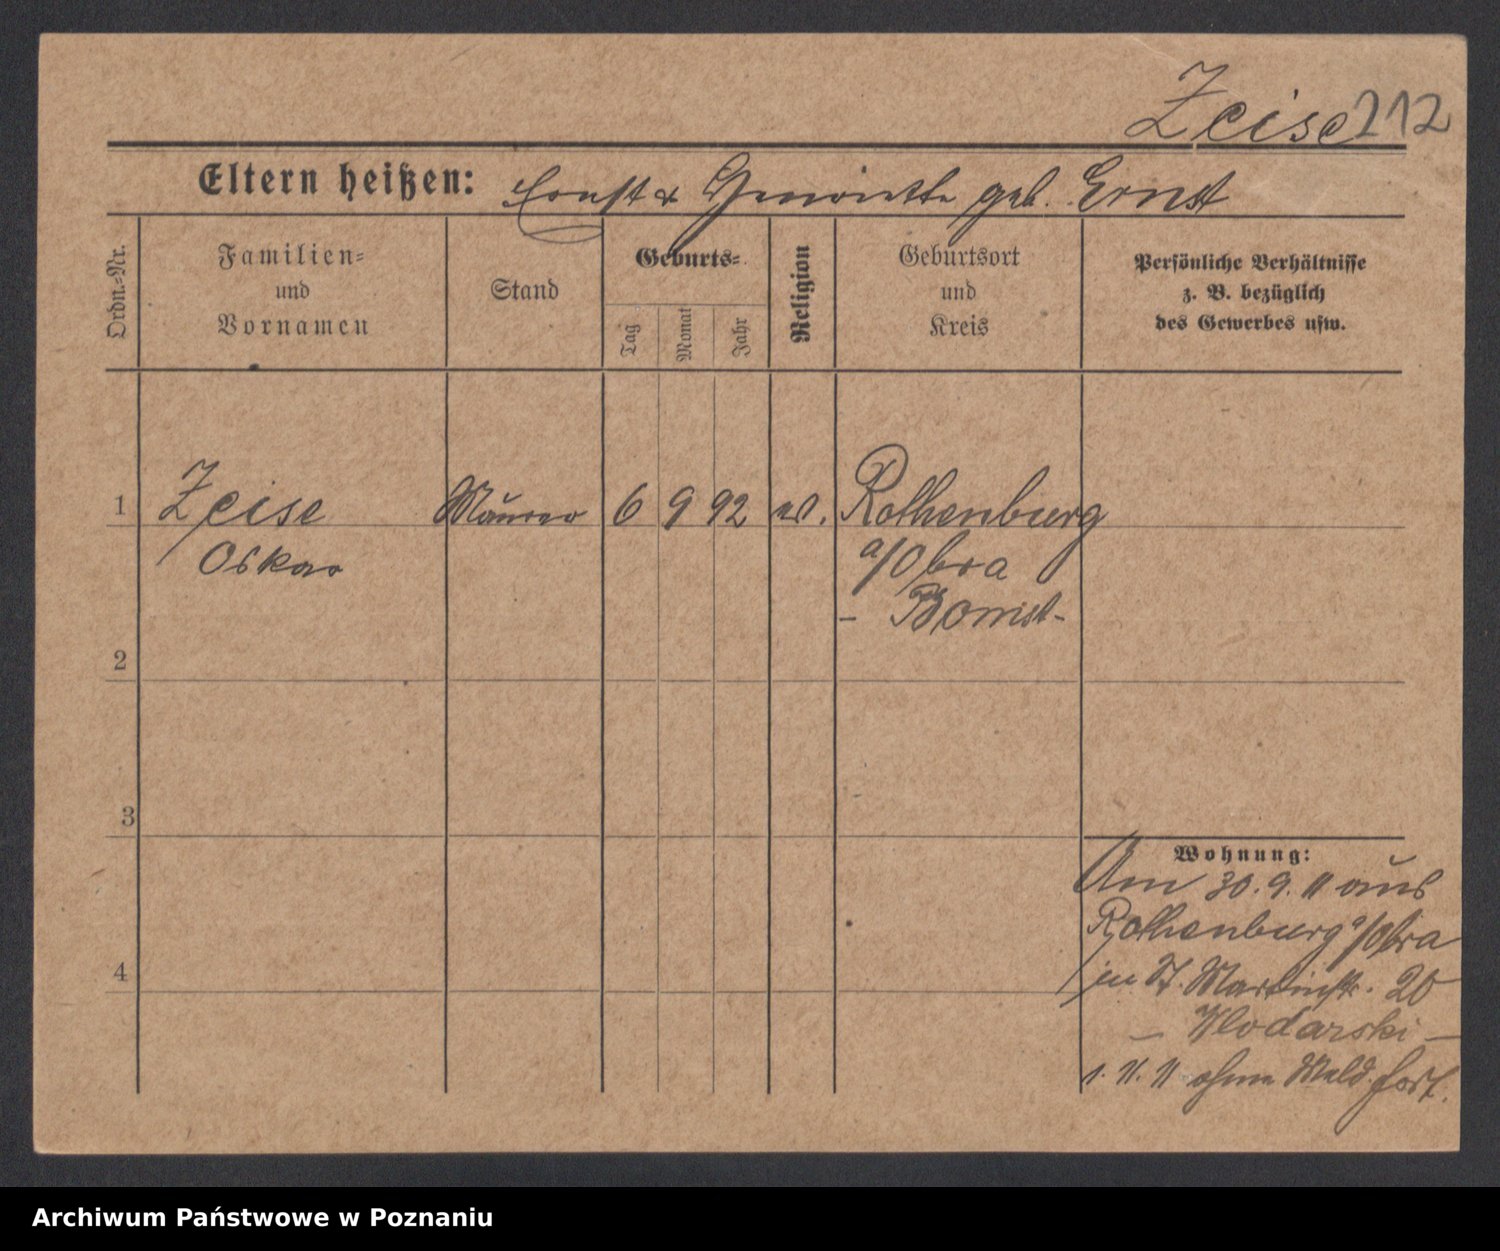 Zeise 212
Eltern heißen: Ernst & Henriette geb. Ernst
Ordn.-Nr.
Familien-
und
Vornamen
Stand
Geburts-
Tag
Monat
Jahr
Religion
Geburtsort
und
Kreis
Persönliche Verhältnisse
z. B. bezüglich
des Gewerbes usw.
1 Zeise Maurer 6 9 92 ev. Rothenburg
Oskar a/Obra
- Bomst -
2
3
4
Wohnung:
Am 30.9.11 aus
Rothenburg a/Obra
in St. Martinstr. 20
- Wlodarski -
1. 11. 11 ohne Meld. fort.
Archiwum Państwowe w Poznaniu